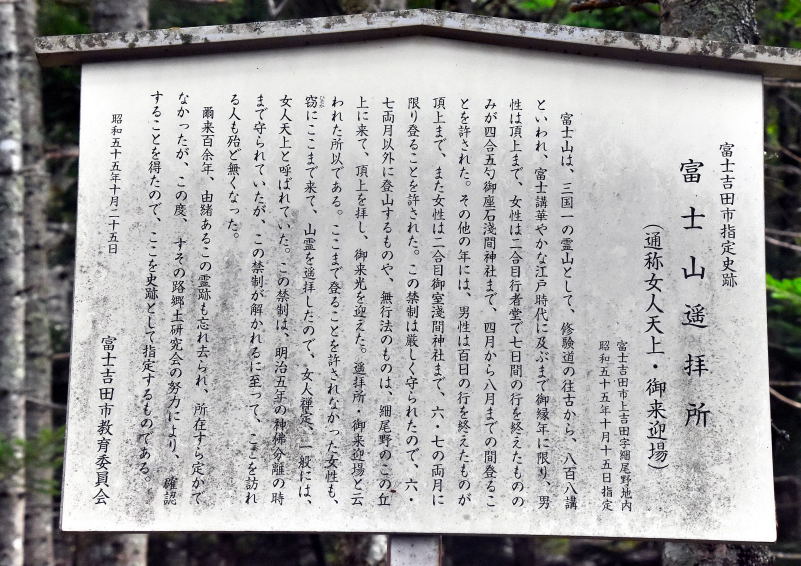 富士吉田市指定史跡
富士山遥拝所
（通称女人天上・御来迎場）
富士吉田市上吉田字細尾野地内
昭和五十五年十月十五日指定
富士山は、三国一の霊山として、修験道の往古から、八百八講
といわれ、富士講華やかな江戸時代に及ぶまで御縁年に限り、男
性は頂上まで、女性は二合目行者堂で七日間の行を終えたものの
みが四合五勺御座石淺間神社まで、四月から八月までの間登るこ
とを許された。その他の年には、男性は百日の行を終えたものが
頂上まで、また女性は二合目御室淺間神社まで、六・七の両月に
限り登ることを許された。この禁制は厳しく守られたので、六・
七両月以外に登山するものや、無行法のものは、細尾野のこの丘
上に来て、頂上を拝し、御来光を迎えた。遥拝所・御来迎場と云
われた所以である。ここまで登ることを許されなかった女性も、
窃にここまで来て、山霊を遥拝したので、女人禅定、一般には、
女人天上と呼ばれていた。この禁制は、明治五年の神佛分離の時
まで守られていたが、この禁制が解かれるに至って、ここを訪れ
る人も殆ど無くなった。
爾来百余年、由緒あるこの霊跡も忘れ去られ、所在すら定かで
なかったが、この度、すその路郷土研究会の努力により、確認
することを得たので、ここを史跡として指定するものである。
昭和五十五年十月二十五日
富士吉田市教育委員会